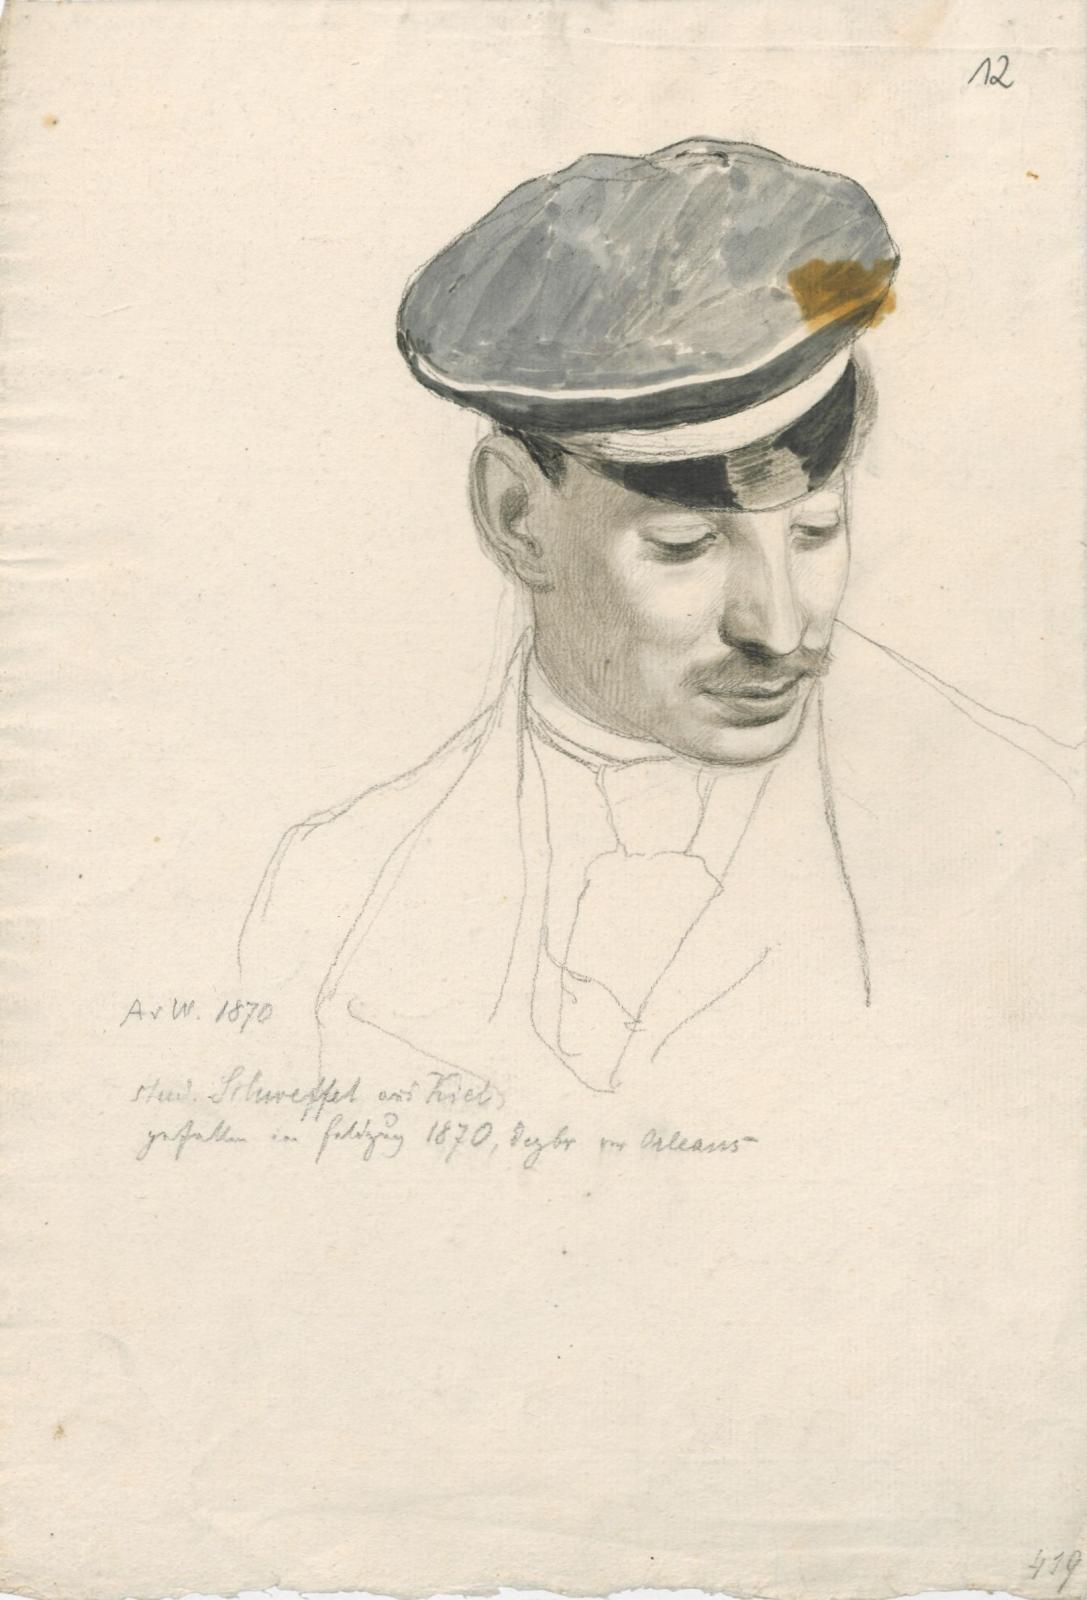 12
A v W. 1870
stud. Schweffel aus Kiel,
gefallen im Feldzug 1870, Dezbr vor Orleans
419